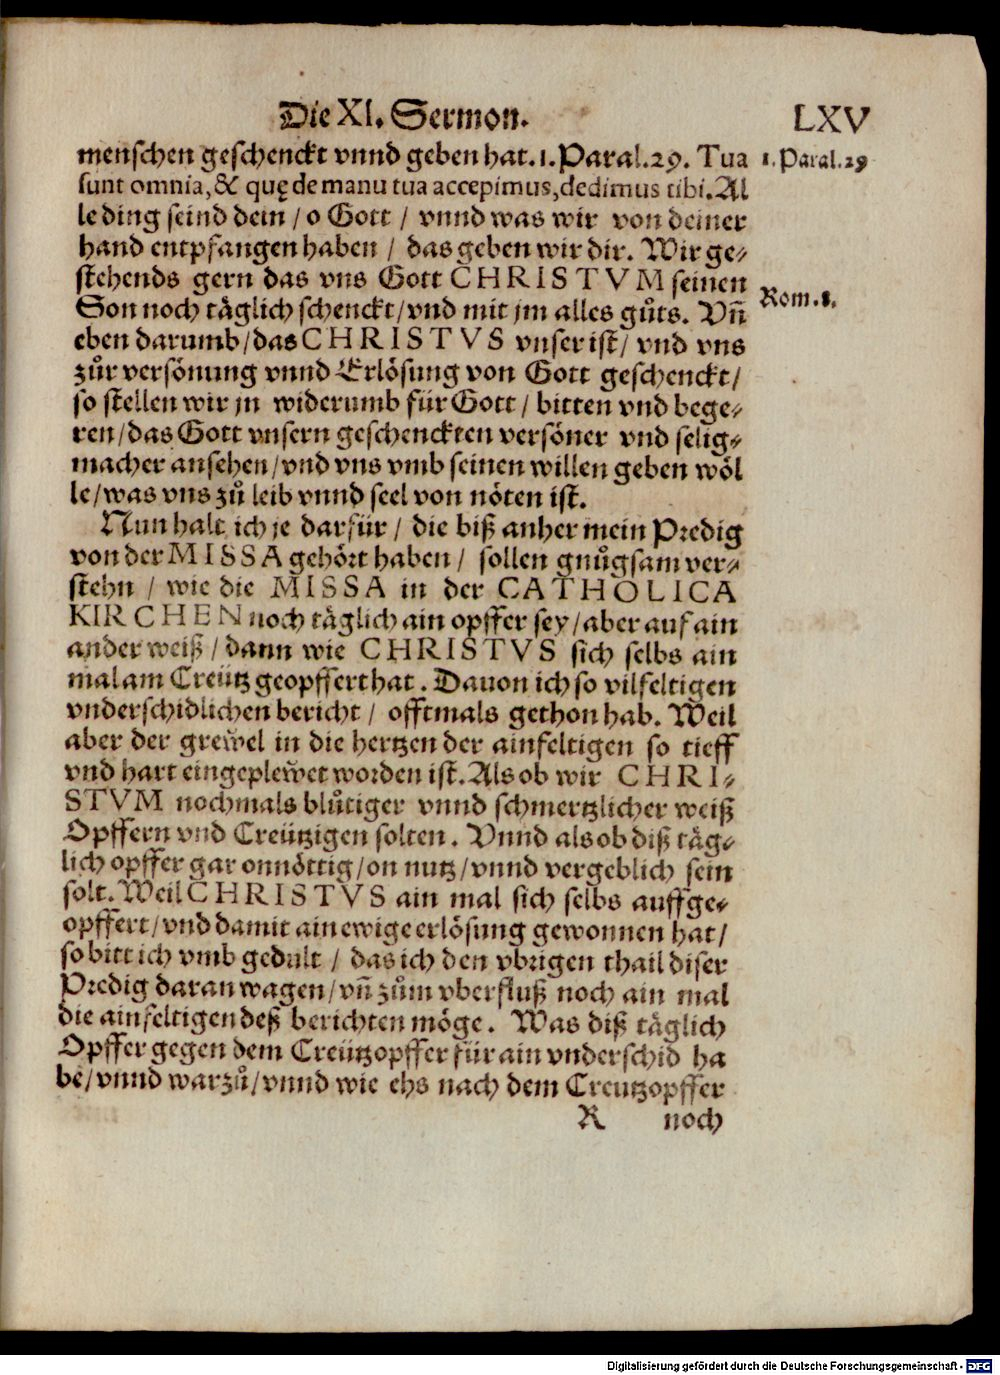 Die XI. Sermon. LXV
menschen geschenckt vnnd geben hat. 1. Paral. 29. Tua
sunt omnia, & quę de manu tua accepimus, dedimus tibi. Al
le ding seind dein / o Gott / vnnd was wir von deiner
hand entpfangen haben / das geben wir dir. Wir ge⸗
stehends gern das vns Gott CHRISTVM seinen
Son noch täglich schenckt / vnd mit jm alles gůts. Vñ
eben darumb / das CHRISTVS vnser ist / vnd vns
zůr versönung vnnd Erlösung von Gott geschenckt /
so stellen wir jn widerumb für Gott / bitten vnd bege⸗
ren / das Gott vnsern geschenckten versöner vnd selig⸗
macher ansehen / vnd vns vmb seinen willen geben wöl
le / was vns zů leib vnnd seel von nöten ist.
Nun halt ich je darfür / die biß anher mein Predig
von der MISSA gehört haben / sollen gnůgsam ver⸗
stehn / wie die MISSA in der CATHOLICA
KIRCHEN noch täglich ain opffer sey / aber auf ain
ander weiß / dann wie CHRISTVS sich selbs ain
mal am Creütz geopffert hat. Dauon ich so vilfeltigen
vnderschidlichen bericht / offtmals gethon hab. Weil
aber der grewel in die hertzen der ainfeltigen so tieff
vnd hart eingeplewet worden ist. Als ob wir CHRI⸗
STVM nochmals blůtiger vnnd schmertzlicher weiß
Opffern vnd Creützigen solten. Vnnd als ob diß täg⸗
lich opffer gar onnöttig / on nutz / vnnd vergeblich sein
solt. Weil CHRISTVS ain mal sich selbs auffge⸗
opffert / vnd damit ain ewige erlösung gewonnen hat /
so bitt ich vmb gedult / das ich den vbrigen thail diser
Predig daran wagen / vñ zům vberfluß noch ain mal
die ainfeltigen deß berichten möge. Was diß täglich
Opffer gegen dem Creützopffer für ain vnderschid ha
be / vnnd warzů / vnnd wie ehs nach dem Creutzopffer
R noch
1. Paral. 29
Rom. 8.
Digitalisierung gefördert durch die Deutsche Forschungsgemeinschaft - DFG